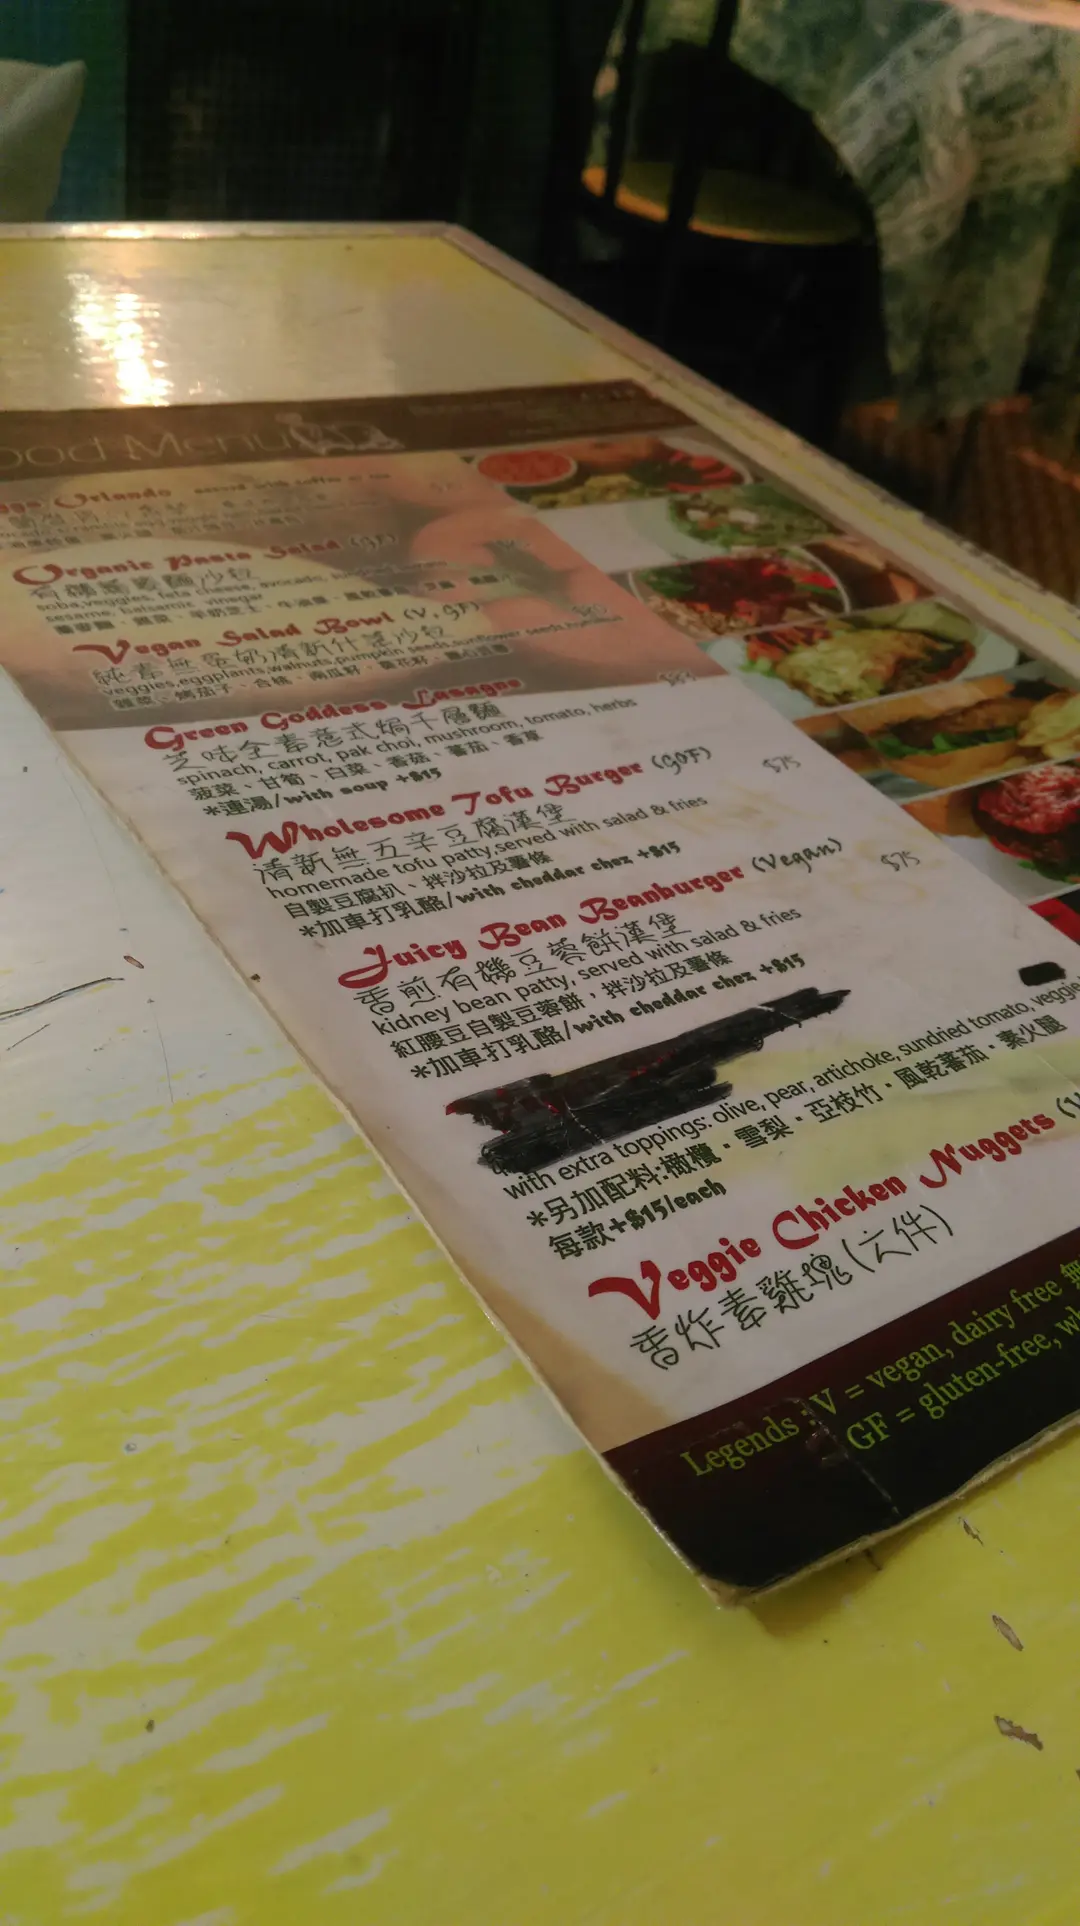 ood Menu
Orlando served with coffee or tea
Organic Pasta Salad (GF)
有機蕎麥麵沙拉
soba,veggies, feta cheese, avocado,
sesame, balsamic vinegar
Vegan Salad Bowl (V, GF)
純素無蛋奶清新什菜沙拉
veggies,eggplants,walnuts,pumpkin seeds,sunflower seeds,hummus
雜菜、烤茄子、合桃、南瓜籽、葵花籽、
Green Goddess Lasagne
芝味全素意式焗千層麵
spinach, carrot, pak choi, mushroom, tomato, herbs
菠菜、甘筍、白菜、香菇、蕃茄、香草
*連湯/with soup +$15
Wholesome Tofu Burger (GOF) $75
清新無五辛豆腐漢堡
homemade tofu patty,served with salad & fries
自製豆腐扒、拌沙拉及薯條
*加車打乳酪/with cheddar chez +$15
Juicy Bean Beanburger (Vegan) $75
香煎有機豆蓉餅漢堡
kidney bean patty, served with salad & fries
紅腰豆自製豆蓉餅，拌沙拉及薯條
*加車打乳酪/with cheddar chez +$15
with extra toppings: olive, pear, artichoke, sundried tomato, veggie
*另加配料:橄欖・雪梨・亞枝竹・風乾蕃茄・素火腿
每款+$15/each
Veggie Chicken Nuggets (V
香炸素雞塊(六件)
Legends : V = vegan, dairy free 無
GF = gluten-free, wh